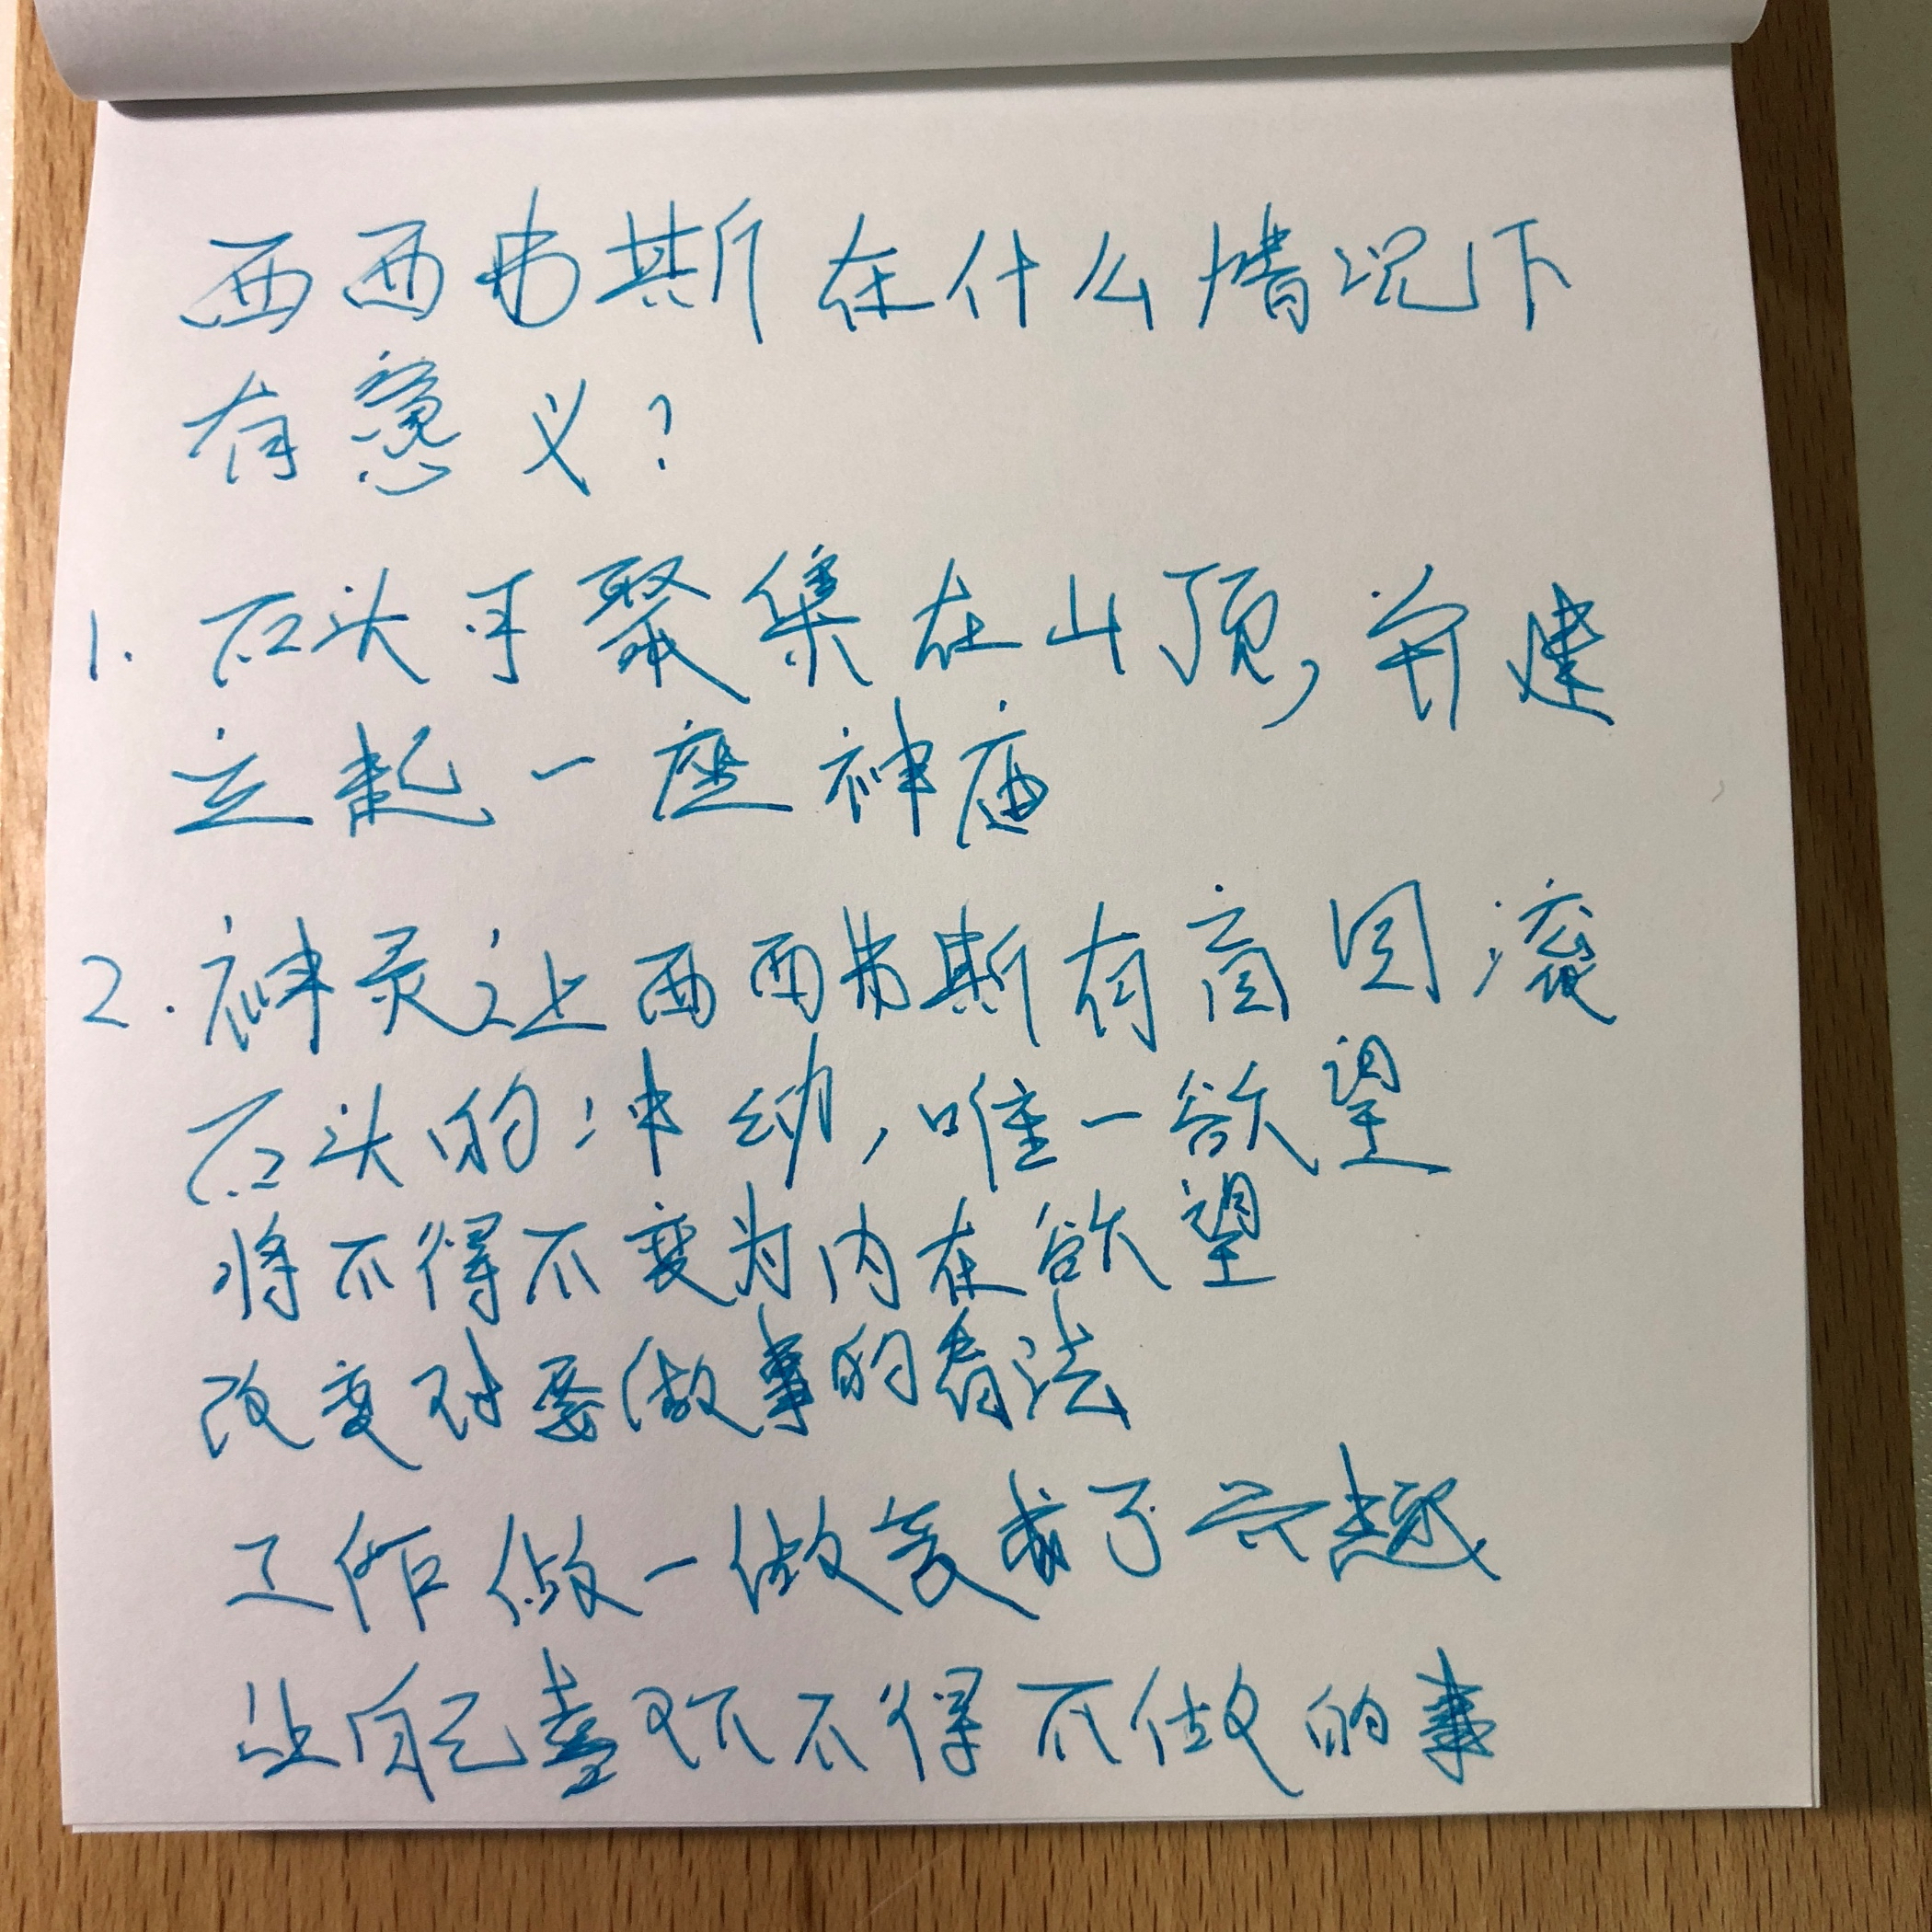 西西弗斯在什么情况下
有意义?
1. 石头可聚集在山顶,并建
立起一座神庙
2. 神灵让西西弗斯有盲目滚
石头的冲动,唯一欲望
将不得不变为内在欲望
改变对要做事的看法
工作做一做变成了兴趣
让自己喜欢不得不做的事